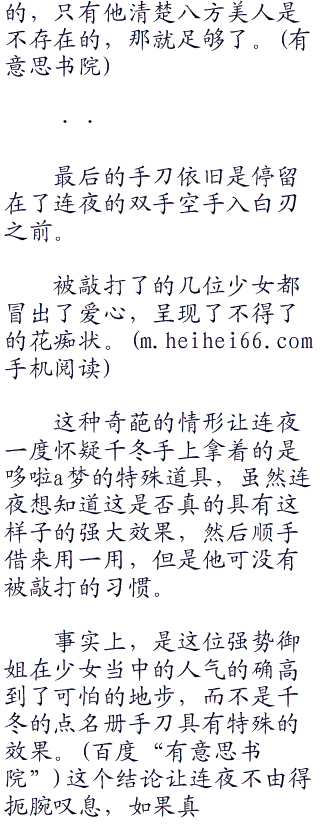 的，只有他清楚八方美人是
不存在的，那就足够了。(有
意思书院)
．．
最后的手刀依旧是停留
在了连夜的双手空手入白刃
之前。
被敲打了的几位少女都
冒出了爱心，呈现了不得了
的花痴状。(m.heihei66.com
手机阅读)
这种奇葩的情形让连夜
一度怀疑千冬手上拿着的是
哆啦a梦的特殊道具，虽然连
夜想知道这是否真的具有这
样子的强大效果，然后顺手
借来用一用，但是他可没有
被敲打的习惯。
事实上，是这位强势御
姐在少女当中的人气的确高
到了可怕的地步，而不是千
冬的点名册手刀具有特殊的
效果。(百度“有意思书
院”)这个结论让连夜不由得
扼腕叹息，如果真